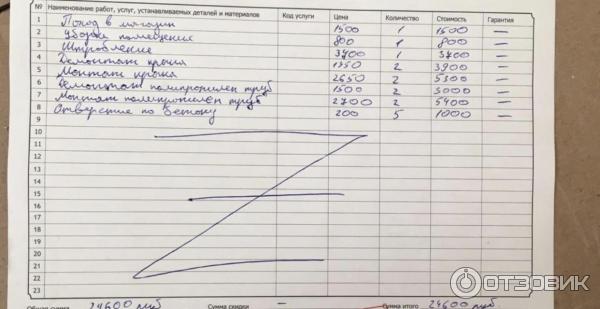 № Наименование работ, услуг, устанавливаемых деталей и материалов Код услуги Цена Количество Стоимость Гарантия
1 Поход в магазин 1500 1 1500 —
2 Уборка помещение 800 1 800 —
3 Штробление 3700 1 3700 —
4 Демонтаж крана 1950 2 3900 —
5 Монтаж крана 2650 2 5300 —
6 Демонтаж полипропилен труб 1500 2 3000 —
7 Монтаж полипропилен труб 2700 2 5400 —
8 Отверстие по бетону 200 5 1000 —
9
10
11
12
13
14
15
16
17
18
19
20
21
22
23
Общая сумма 24600 руб Сумма скидки — Сумма итого 24600 руб.
ОТЗОВИК